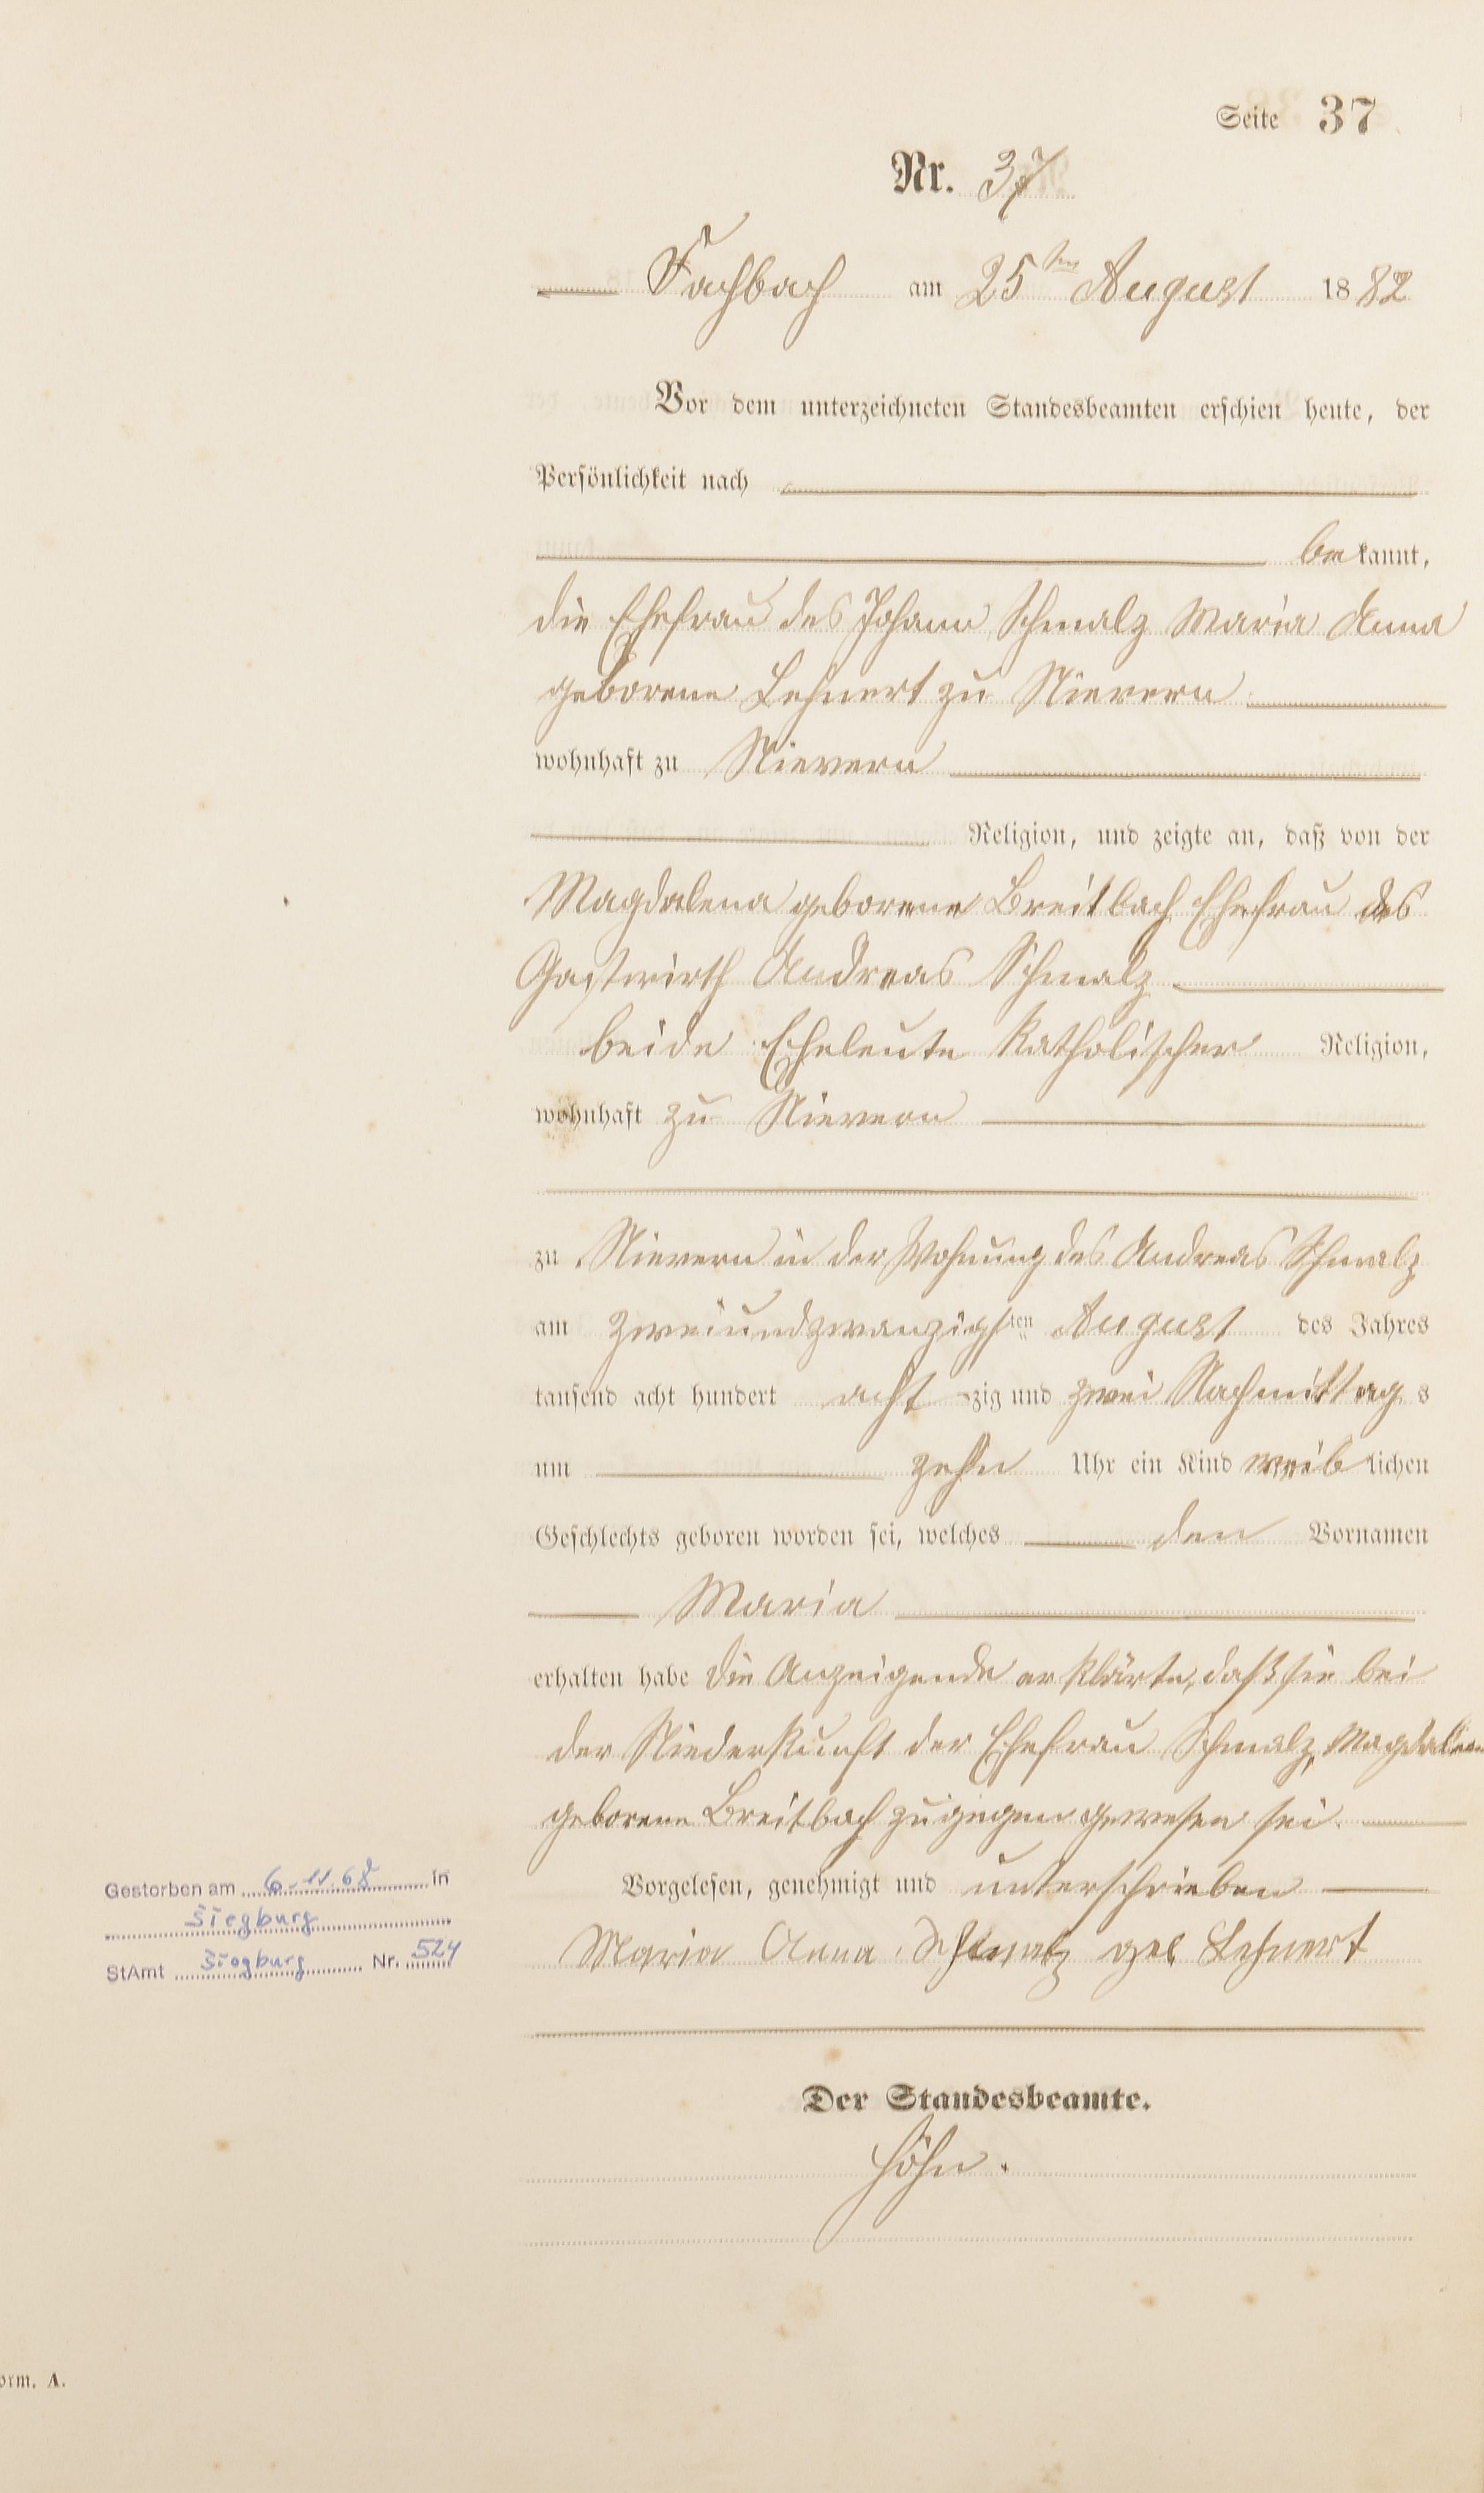 Seite 37
Nr. 37
Fachbach am 25ten August 1882
Vor dem unterzeichneten Standesbeamten erschien heute, der
Persönlichkeit nach
bekannt,
die Ehefrau des Johann Schmalz Maria Anna
geborene Lehnert zu Nievern
wohnhaft zu Nievern
Religion, und zeigte an, daß von der
Magdalena geborene Breitbach Ehefrau des
Gastwirth Andreas Schmalz
beide Eheleute Katholischer Religion,
wohnhaft zu Nievern
zu Nievern in der Wohnung des Andreas Schmalz
am zweiundzwanzigsten August des Jahres
tausend acht hundert acht zig und zwei Nachmittags
um zehn Uhr ein Kind weiblichen
Geschlechts geboren worden sei, welches den Vornamen
Maria
erhalten habe die Anzeigende erklärte, daß sie bei
der Niederkunft der Ehefrau Schmalz, Magdalena
geborene Breitbach zugegen gewesen sei.
Vorgelesen, genehmigt und unterschrieben
Maria Anna Schmalz geb Lehnert
Der Standesbeamte.
Höhn.
Gestorben am 6.11.68 in
Siegburg
StAmt Siegburg Nr. 524
orm. A.